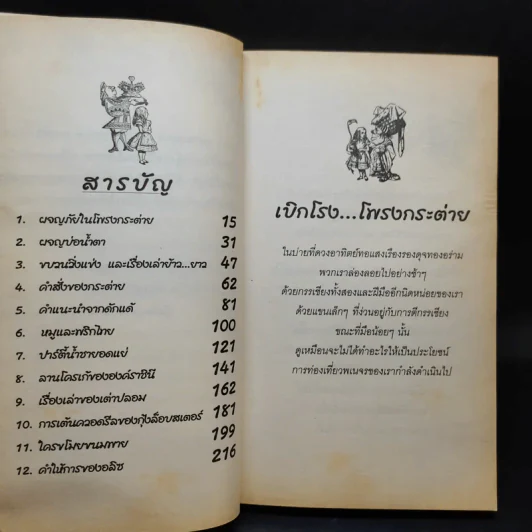 สารบัญ
1. ผจญภัยในโพรงกระต่าย 15
2. ผจญบ่อน้ำตา 31
3. ขบวนวิ่งแข่ง และเรื่องเล่ายาว...ยาว 47
4. คำสั่งของกระต่าย 62
5. คำแนะนำจากดักแด้ 81
6. หมูและพริกไทย 100
7. ปาร์ตี้น้ำชายอดแย่ 121
8. ลานโครเก้ขององค์ราชินี 141
9. เรื่องเล่าของเต่าปลอม 162
10. การเต้นควอดรีลของกุ้งล็อบสเตอร์ 181
11. ใครขโมยขนมพาย 199
12. คำให้การของอลิซ 216
เบิกโรง...โพรงกระต่าย
ในบ่ายที่ดวงอาทิตย์ทอแสงเรืองรองดุจทองอร่าม
พวกเราล่องลอยไปอย่างช้าๆ
ด้วยกรรเชียงทั้งสองและฝีมืออีกนิดหน่อยของเรา
ด้วยแขนเล็กๆ ที่ง่วนอยู่กับการตีกรรเชียง
ขณะที่มือน้อยๆ นั้น
ดูเหมือนจะไม่ได้ทำอะไรให้เป็นประโยชน์
การท่องเที่ยวพเนจรของเรากำลังดำเนินไป